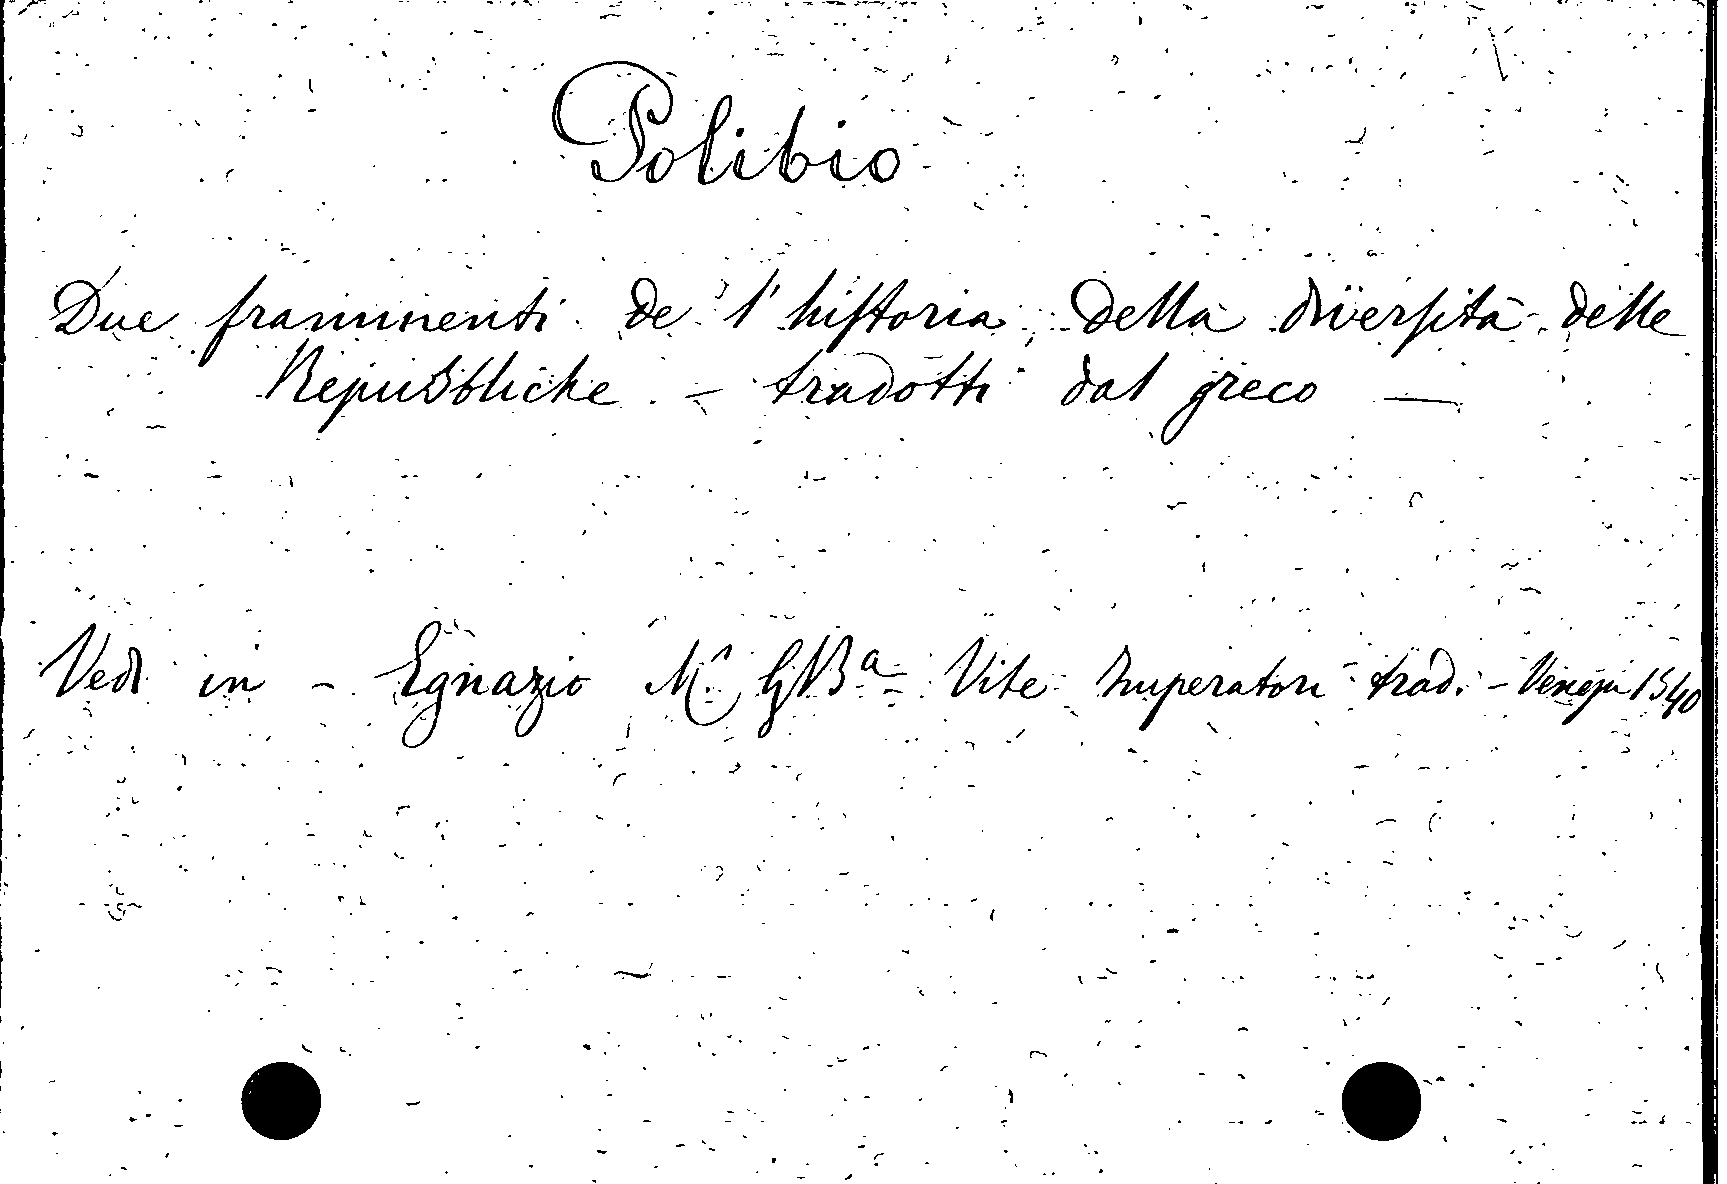 Polibio
Due frammenti de l'historia della diversità delle
Repubbliche - tradotti dal greco —
Vedi in - Egnazio M. GBa - Vite Imperatori trad. - Venezia 1540